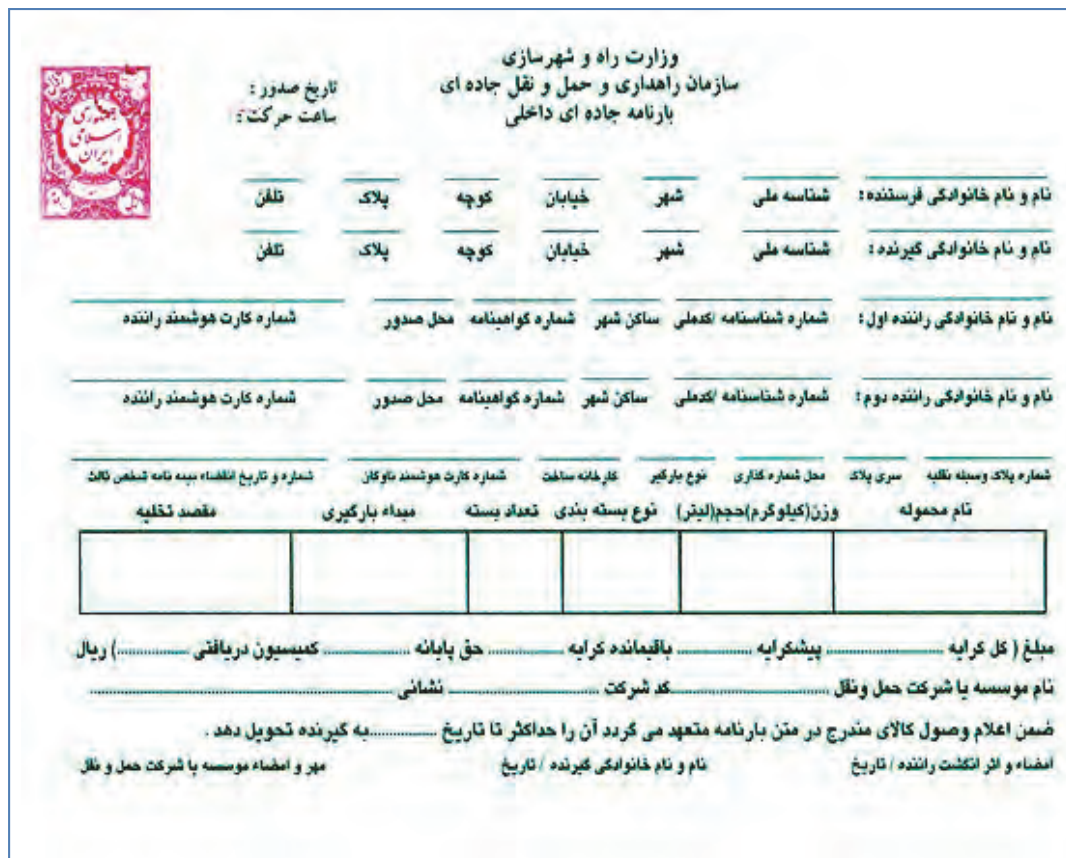 وزارت راه و شهرسازی
سازمان راهداری و حمل و نقل جاده ای
بارنامه جاده ای داخلی
تاریخ صدور :
ساعت حرکت :
جمهوری
اسلامی
ایران
نام و نام خانوادگی فرستنده : شناسه ملی شهر خیابان کوچه پلاک تلفن
نام و نام خانوادگی گیرنده : شناسه ملی شهر خیابان کوچه پلاک تلفن
نام و نام خانوادگی راننده اول : شماره شناسنامه /کدملی ساکن شهر شماره گواهینامه محل صدور شماره کارت هوشمند راننده
نام و نام خانوادگی راننده دوم : شماره شناسنامه /کدملی ساکن شهر شماره گواهینامه محل صدور شماره کارت هوشمند راننده
شماره پلاک وسیله نقلیه سری پلاک محل شماره گذاری نوع بارگیر کارخانه ساخت شماره کارت هوشمند ناوگان شماره و تاریخ انقضاء بیمه نامه شخص ثالث
نام محموله وزن(کیلوگرم)حجم(لیتر) نوع بسته بندی تعداد بسته مبداء بارگیری مقصد تخلیه
مبلغ ( کل کرایه .................... پیشکرایه ............... باقیمانده کرایه ............... حق پایانه ................. کمیسیون دریافتی ..............) ریال
نام موسسه یا شرکت حمل ونقل ..............................کد شرکت ............................. نشانی ............................................................
ضمن اعلام وصول کالای مندرج در متن بارنامه متعهد می گردد آن را حداکثر تا تاریخ .............به گیرنده تحویل دهد .
امضاء و اثر انگشت راننده / تاریخ نام و نام خانوادگی گیرنده / تاریخ مهر و امضاء موسسه یا شرکت حمل و نقل